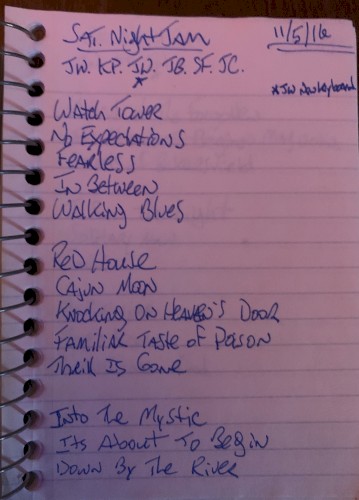 Sat. Night Jam 11/5/16
JW. KP. JW. JG. SF. JC.
* *JW on keyboard
Watch Tower
No Expectations
Fearless
In Between
Walking Blues
Red House
Cajun Moon
Knocking On Heaven's Door
Familiar Taste of Poison
Thrill Is Gone
Into The Mystic
Its About To Begin
Down By The River